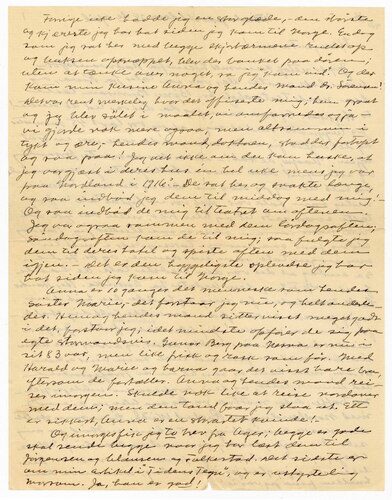 Forrige uke hadde jeg en stor glede, - den største
og kjæreste jeg har hat siden jeg kom til Norge. Endog
som jeg sat her med begge skjorteærmene
og buksen opknappet, blev der banket paa døren;
uten at tænke over noget, sa jeg kom ind! Og der
kom min kusine Anna og hendes mand Dr.
Det var rent merkelig hvor det affiserte mig; hun graat
og jeg blev i maalet, vi omfavnedes ogsaa -
vi gjorde nok mere ogsaa, men altsammen i
tugt og ære, - hendes mand, doktoren, stod der forbløffet
og saa paa! Jeg vet ikke om du kan huske, at
jeg var gjæst i deres hus en hel uke mens jeg var
paa Nordland i 1916! - De sat her og snakte længe,
og saa indbød jeg dem til middag med mig! -
Og saa indbød de mig til teatret om aftenen.
Jeg var ogsaa sammen med dem lørdag aften,
Søndag aften kom de til mig; saa fulgte jeg
dem til deres hotel og spiste aften med dem
igjen. Det er den hyggeligste oplevelse jeg har
hat siden jeg kom til Norge.
Anna er 10 ganger det menneske som hendes
søster Marie, det forstaar jeg nu, og helt anderle-
des. Hun og hendes mand sitter visst meget godt
i det, forstaar jeg; i det mindste opfører de sig paa
ægte Gunnar Berg paa Nesna er nu i
sit 83 aar, men like frisk og rask som før. Med
Harald og Marie og barna gaar det visst bare bra,
eftersom de fortæller. Anna og hendes mand rei-
ser imorgen. Skulde nok like at reise nordover
med dem; men den tanke faar jeg slaa ut. Ett
er sikkert, Anna er en kvinde!
Og imorges fik jeg to brev fra Eger; begge er gode
skal sende begge naar jeg har læst dem til
Jørgensen og Clausen og Det sidste er
om min artikel i "Tidens Tegn", og er
morsom. Ja, han er god!